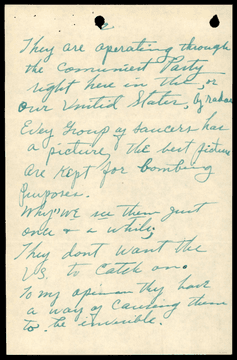 They are operating through
the Communist Party
right here in the, or
our United States, by radar
Evey Group of saucers has
a picture, the best picture
are kept for bombing
purposes.
Why "we see them just
once & a while,
They dont want the
U.S. to catch on.
To my opinion they have
a way of causing them
to be invisible.